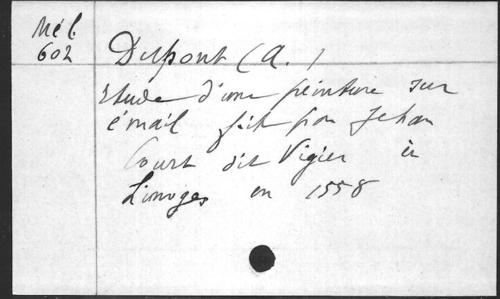 Mél.
602
Dupont (A.)
Etude d'une peinture sur
émail fait par Jehan
Court dit Vigier à
Limoges en 1558